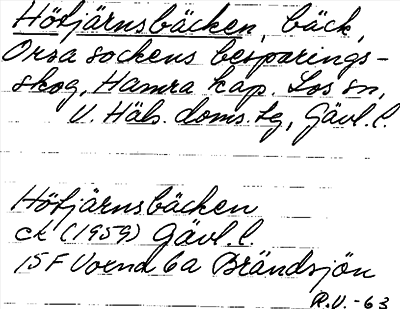 Hötjärnsbäcken, bäck,
Orsa sockens besparings-
skog, Hamra kap. Los sn,
V. Häls. doms. tg, Gävl. l.
Hötjärnsbäcken
ek (1959) Gävl. l.
15F Voxna 6a Brändsjön
R.V. - 63